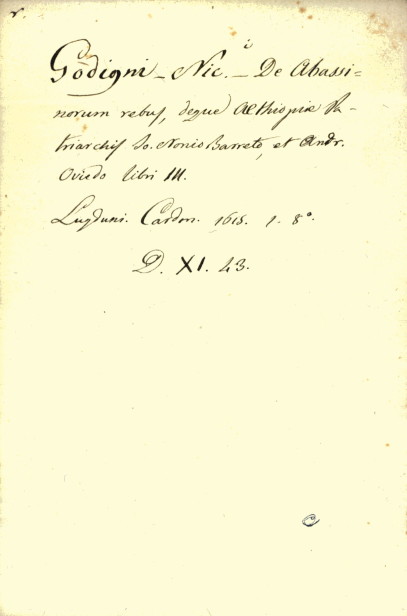 v.
Gòdigni - Nic.i - De Abassi=
norum rebus, deque Aethiopiæ Pa-
triarchis Jo. Nonio Barreto, et Andr.
Oviedo libri III.
Lugduni. Cardon. 1615. 1. 8°.
D. XI. 43.